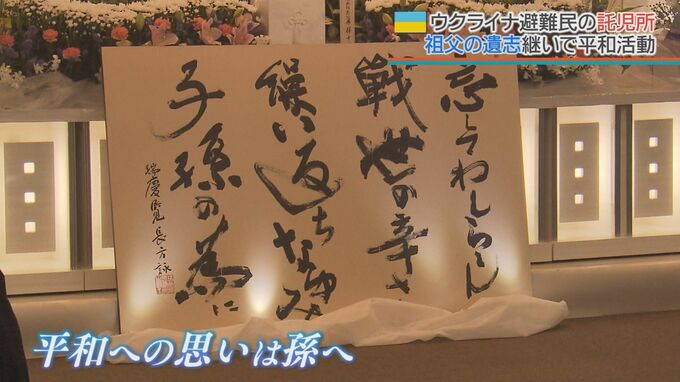 ウクライナ避難民の託児所
祖父の遺志継いで平和活動
忘 わしららん
戦世の辛さ
繰い返ちなゆみ
子孫の為に
瑞慶覧長方詠
平和への思いは孫へ